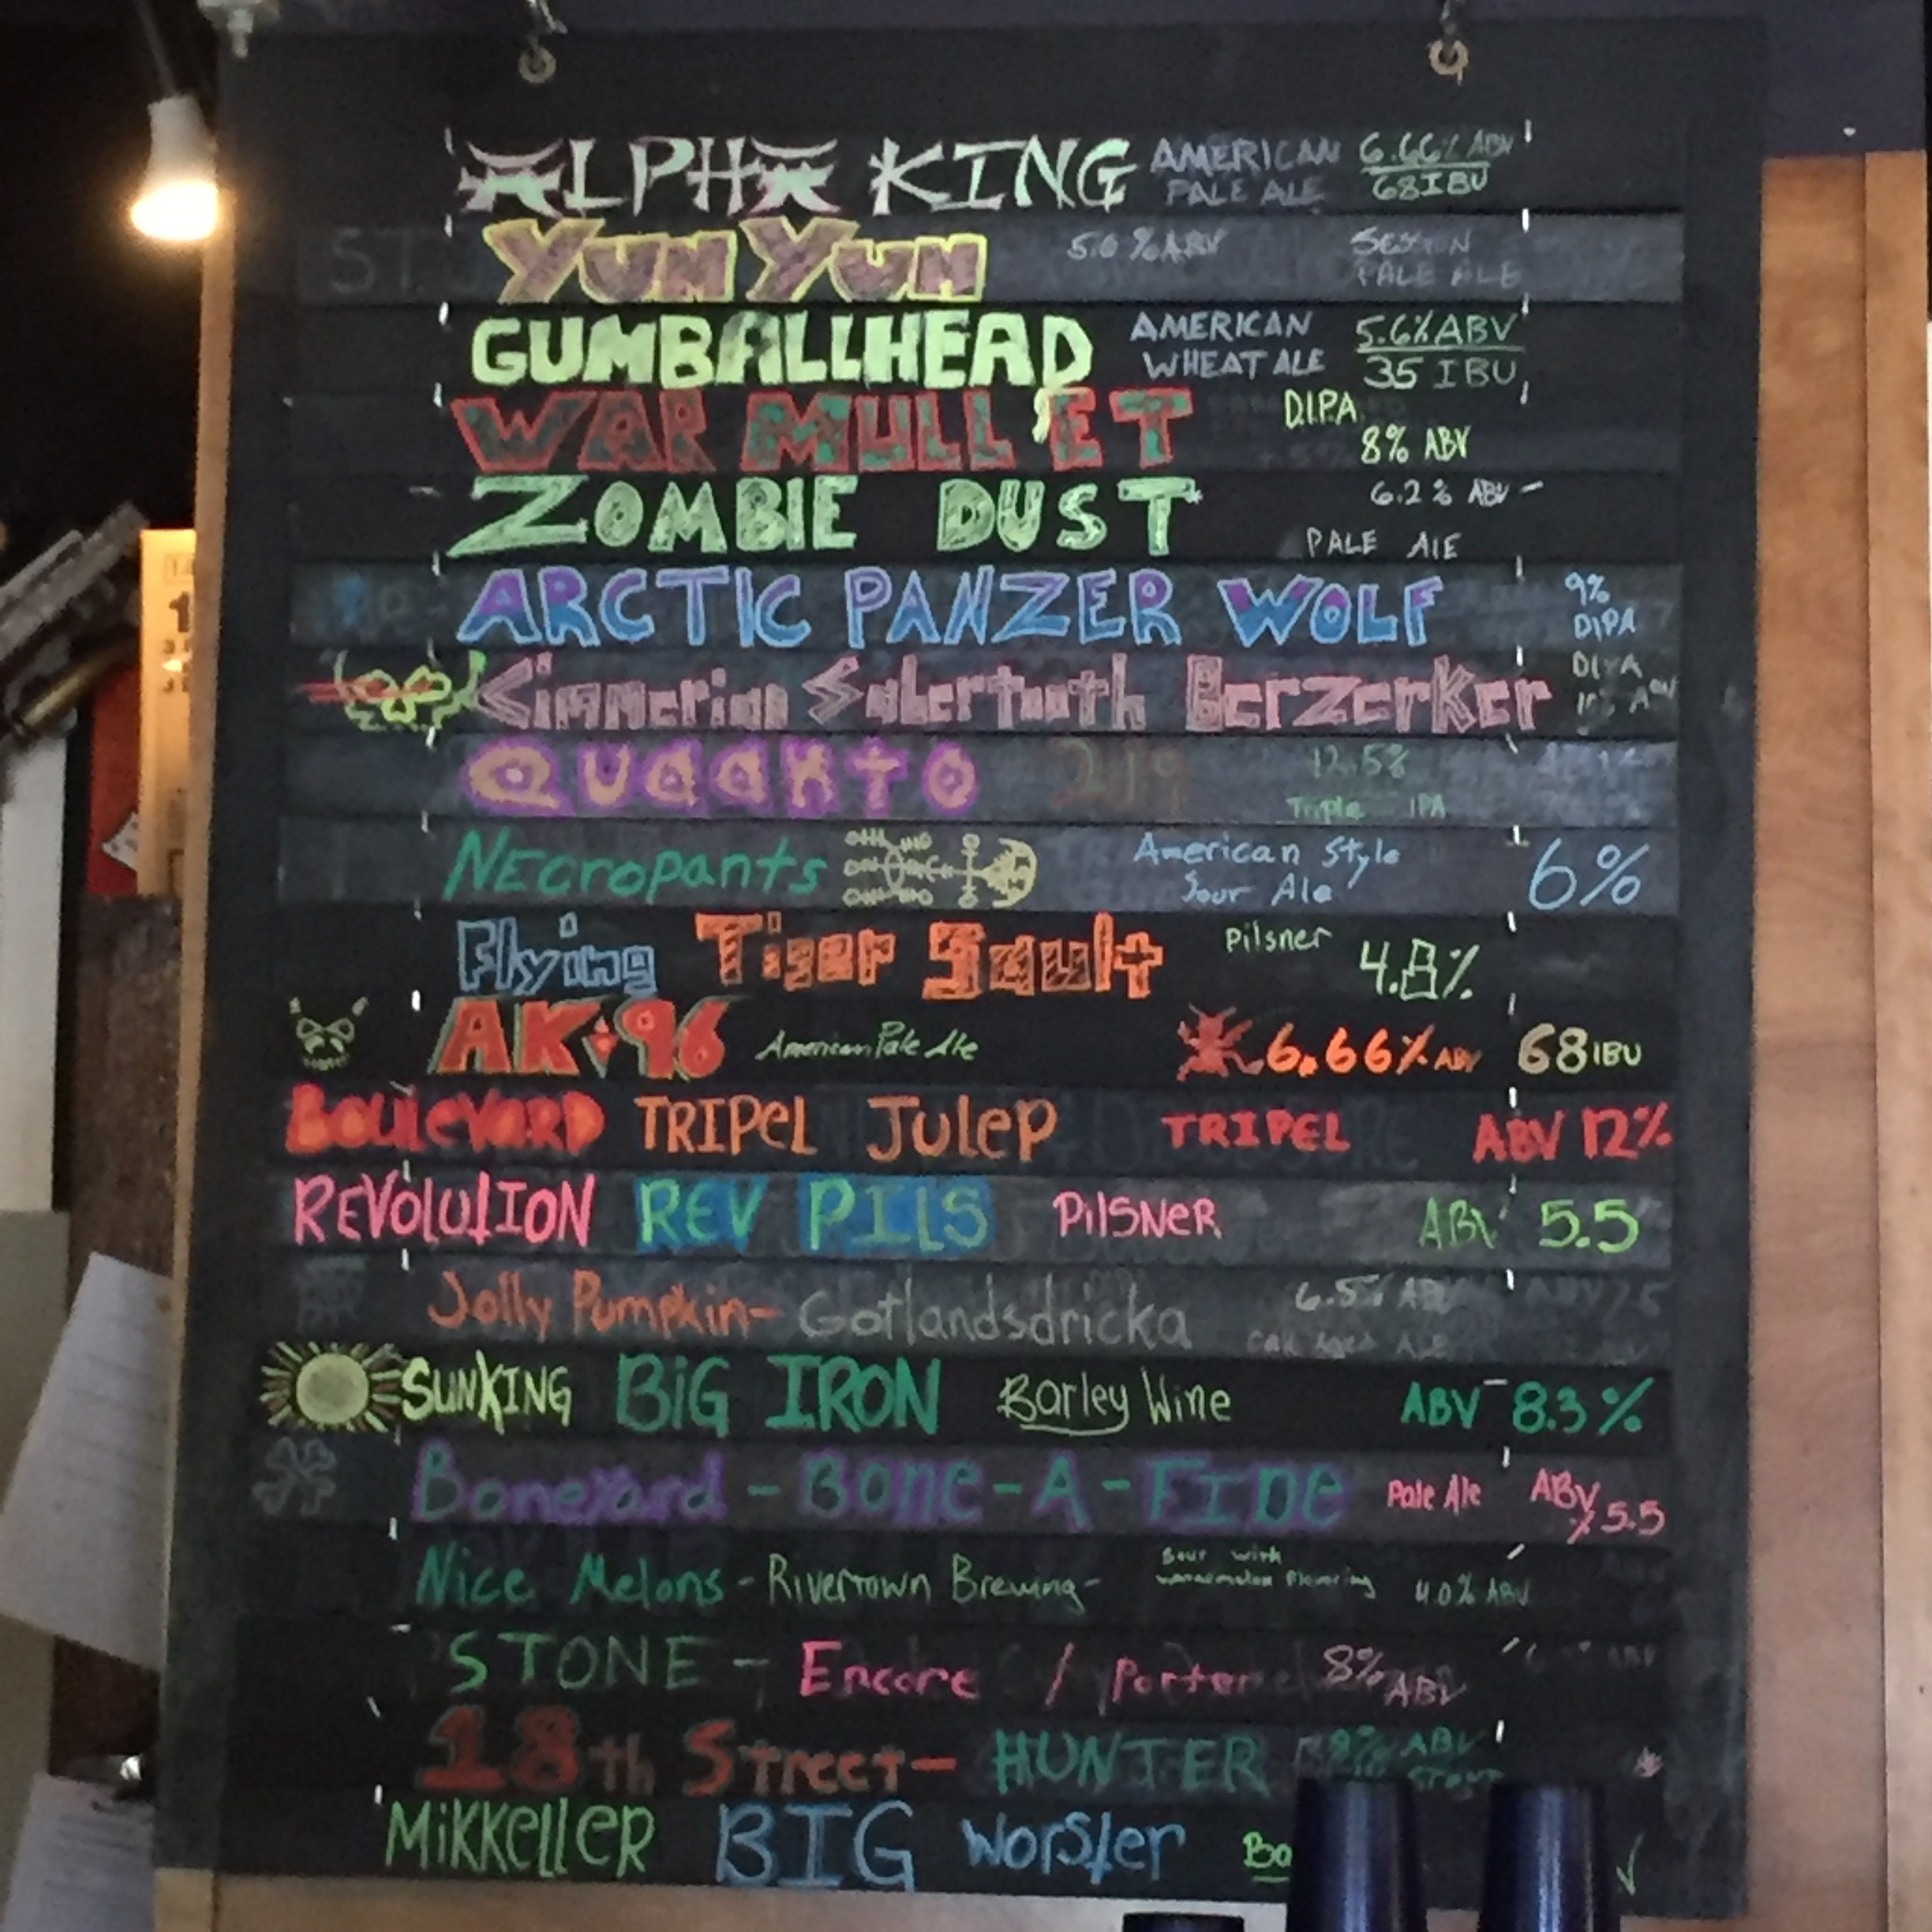 ALPHA KING AMERICAN PALE ALE 6.66% ABV 68 IBU
YUM YUM 5.0%ABV SESSION PALE ALE
GUMBALLHEAD AMERICAN WHEAT ALE 5.6% ABV 35 IBU
WAR MULLET D.I.P.A 8% ABV
ZOMBIE DUST 6.2% ABV PALE ALE
ARCTIC PANZER WOLF 9% DIPA
Cimmerian Sabertooth Berzerker DIPA
QUAANTO 219 12.5% Triple IPA
NEcropants American Style Sour Ale 6%
Flying Tiger Sault Pilsner 4.8%
AK 96 American Pale Ale 6.66% ABV 68 IBU
BOULEVARD TRIPEL JULEP TRIPEL ABV 12%
REVOLUTION REV PILS PILSNER ABV 5.5
Jolly Pumpkin - Gotlandsdricka 6.5% ABV Oak Aged ALE
SUNKING BIG IRON Barley Wine ABV 8.3%
Boneyard - Bone - A - FIDE Pale Ale ABV % 5.5
Nice Melons - Rivertown Brewing - Sour with watermelon flavoring 4.0% ABV
STONE - Encore / Porter 8% ABV
18th Street - HUNTER 8% ABV Stout
MIKKELLER BIG Worster